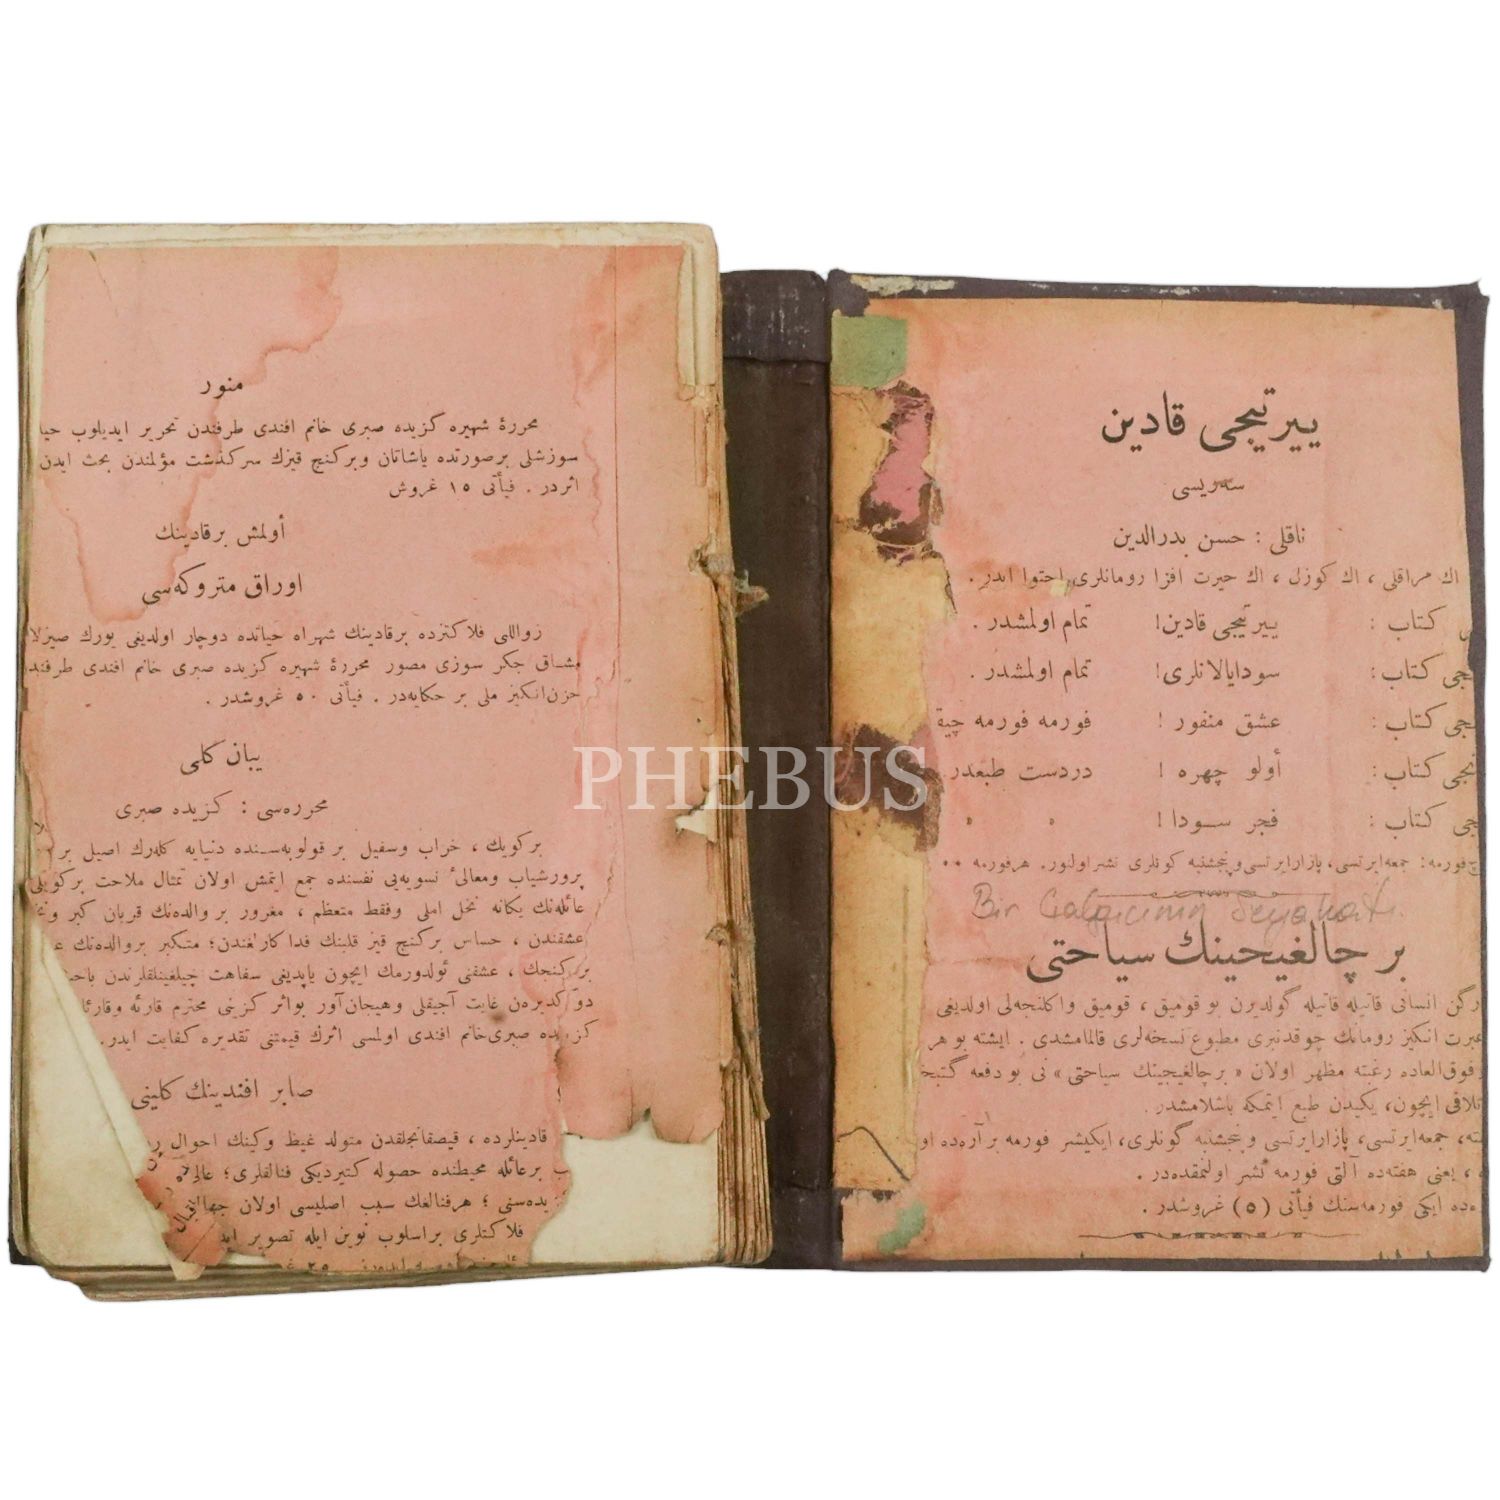 منور
محررهٔ شهیره گزیده صبری خانم افندی طرفندن تحریر ایدیلوب حیا
سوزشلی برصورتده یاشاتان وبرکنج قیزك سرکذشت مؤلمندن بحث ایدن
اثردر . فیأتی ١٥ غروش
أولمش برقادینك
اوراق متروکه‌سی
زواللی فلاکتزده برقادینك شهراه حیاتده دوچار اولدیغی یورك صیزلا
مشاق جکر سوزی مصور محررهٔ شهیره گزیده صبری خانم افندی طرفند
حزن‌انکیز ملی بر حکایه‌در . فیأتی ٥٠ غروشدر .
یبان کلی
محرره‌سی : گزیده صبری
برکویك ، خراب وسفیل بر قولوبه‌سنده دنیایه کله‌رك اصیل بر
پرورشیاب ومعالئ نسویه‌یی نفسنده جمع ایتمش اولان تمثال ملاحت برکویلی
عائله‌نك یکانه نخل املی وفقط متعظم ، مغرور بر والده‌نك قربان کبر ونخ
عشقندن ، حساس برکنج قیز قلبنك فدا کارلغندن؛ متکبر بروالده‌نك
برکنجك ، عشقنی ئولدورمك ایچون یاپدیغی سفاهت چیلغینلقلرندن باحث
دو کدیره‌ن غایت آجیقلی وهیجان‌آور بواثر گزینی محترم قارئه وقارئل
گزیده صبری خانم افندی اولمسی اثرك قیمتنی تقدیره کفایت ایدر.
صابر افندینك کلینی
قادینلرده ، قیصقانجلقدن متولد غیظ وکینك احوال
برعائله محیطنده حصوله کتیردیکی فنالقلری؛
یده‌سنی ؛ هرفنالغك سبب اصلیسی اولان جها
فلاکتلری براسلوب نوین ایله تصویر اید
PHEBUS
ییرتیجی قادین
سه‌ریسی
ناقلی : حسن بدرالدین
اك مراقلی ، اك کوزل ، اك حیرت افزا رومانلری احتوا ایدر .
کتاب : ییرتیجی قادین! تمام اولمشدر .
نجی کتاب : سودایالانلری! تمام اولمشدر .
نجی کتاب : عشق منفور ! فورمه فورمه چیقـ
نجی کتاب : أولو چهره ! دردست طبعدر
نجی کتاب : فجر سودا ! » »
فورمه : جمعه‌ایرتسی، پازارایرتسی وپنجشنبه کونلری نشراولنور. هرفورمه
Bir Çalgıcının Seyahatı.
بر چالغیجینك سیاحتی
انسانی قاتیله قاتیله گولدیرن بو قومیق ، قومیق واکلنجه‌لی اولدیغی
عبرت انکیز رومانك چوقدنبری مطبوع نسخه‌لری قالمامشدی . ایشته بو هر
فوق‌العاده رغبته مظهر اولان « برچالغیجینك سیاحتی » نی بو دفعه
تلافی ایچون، یکیدن طبع ایتمکه باشلامشدر .
جمعه‌ایرتسی، پازارایرتسی وپنجشنبه گونلری، ایکیشر فورمه بر آره‌ده او
، یعنی هفته‌ده آلتی فورمه نشر اولنمقده‌در .
ایکی فورمه‌سنك فیأتی (٥) غروشدر .